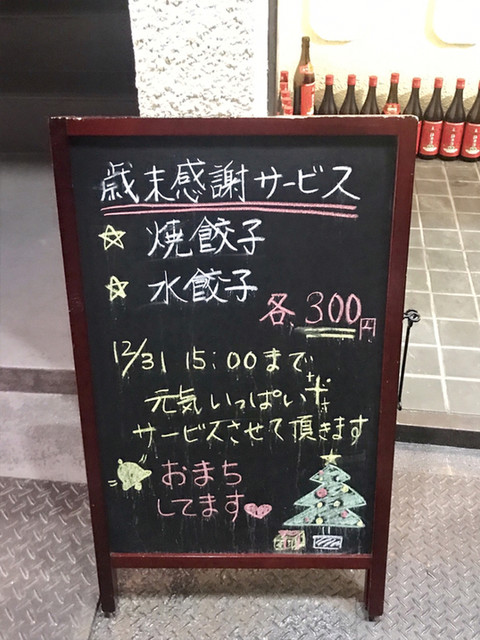 歳末感謝サービス
☆ 焼餃子
☆ 水餃子
各 300円
12/31 15:00まで
元気いっぱい
サービスさせて頂きます
おまち
してます♥